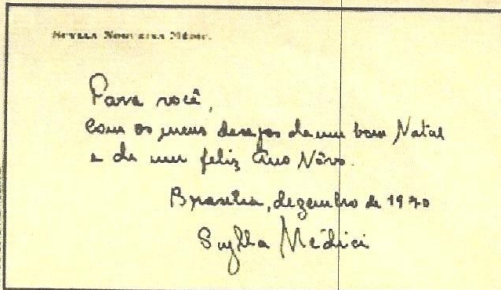 SCYLLA NOGUEIRA MÉDICI
Para você,
com os meus desejos de um bom Natal
e de um feliz Ano Nôvo.
Brasília, dezembro de 1970
Scylla Médici